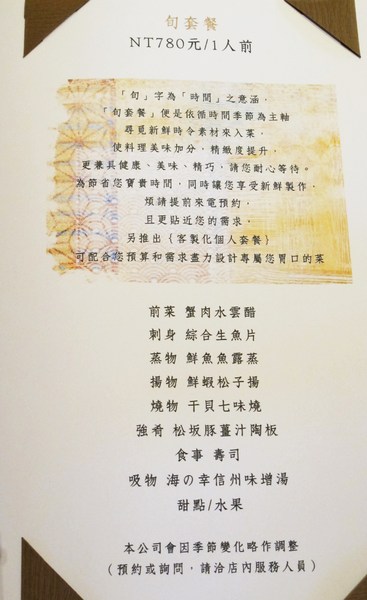 旬套餐
NT780元/1人前
「旬」字為「時間」之意涵，
「旬套餐」便是依循時間季節為主軸
尋覓新鮮時令素材來入菜，
使料理美味加分，精緻度提升，
更兼具健康、美味、精巧，請您耐心等待。
為節省您寶貴時間，同時讓您享受新鮮製作，
煩請提前來電預約，
且更貼近您的需求，
另推出｛客製化個人套餐｝
可配合您預算和需求盡力設計專屬您胃口的菜
前菜 蟹肉水雲醋
刺身 綜合生魚片
蒸物 鮮魚魚露蒸
揚物 鮮蝦松子揚
燒物 干貝七味燒
強肴 松坂豚薑汁陶板
食事 壽司
吸物 海の幸信州味增湯
甜點/水果
本公司會因季節變化略作調整
（預約或詢問，請洽店內服務人員）